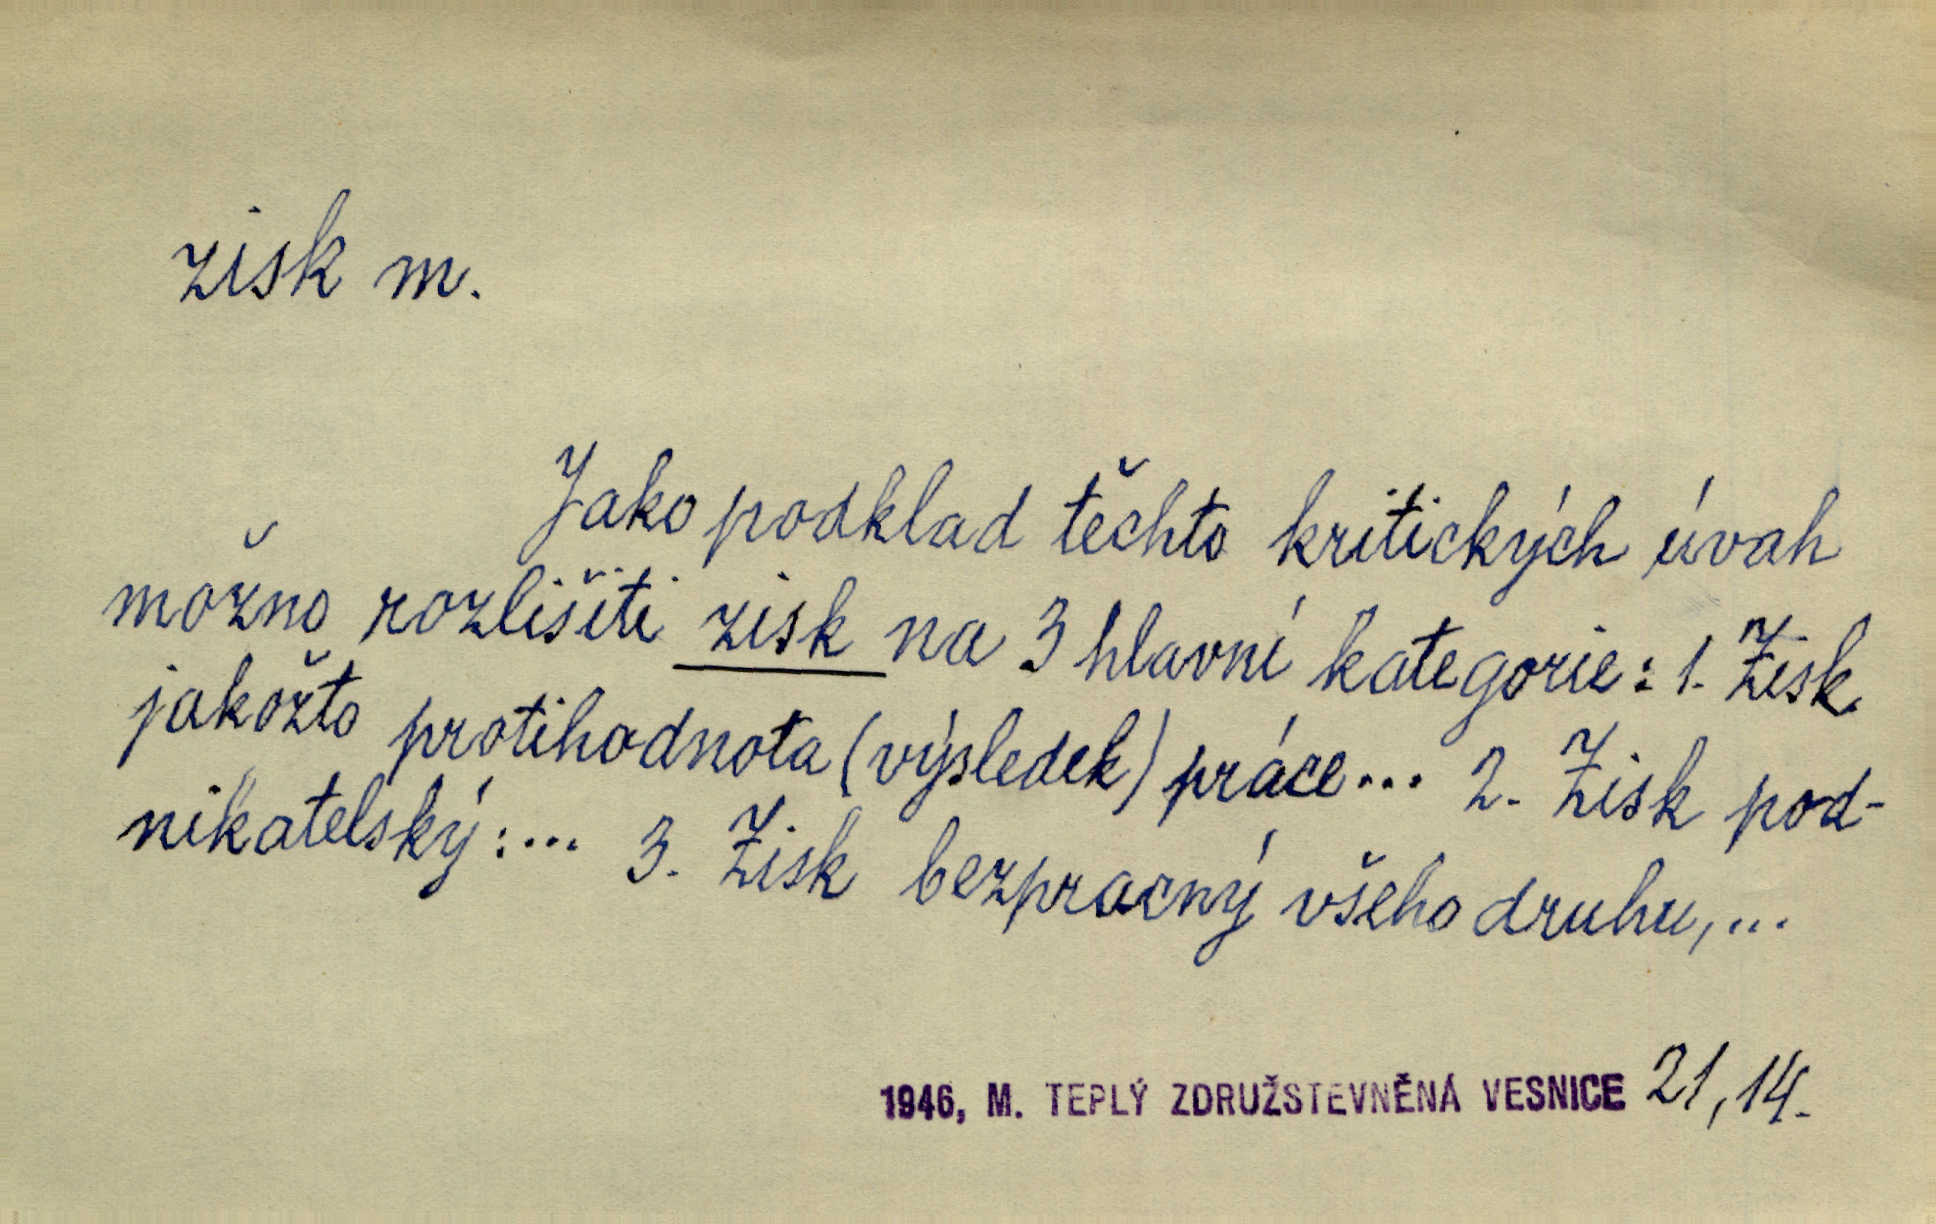 zisk m.
Jako podklad těchto kritických úvah
možno rozlišiti zisk na 3 hlavní kategorie: 1. Zisk
jakožto protihodnota (výsledek) práce... 2. Zisk pod-
nikatelský:... 3. Zisk bezpracný všeho druhu,...
1946, M. TEPLÝ ZDRUŽSTEVNĚNÁ VESNICE 21, 14.